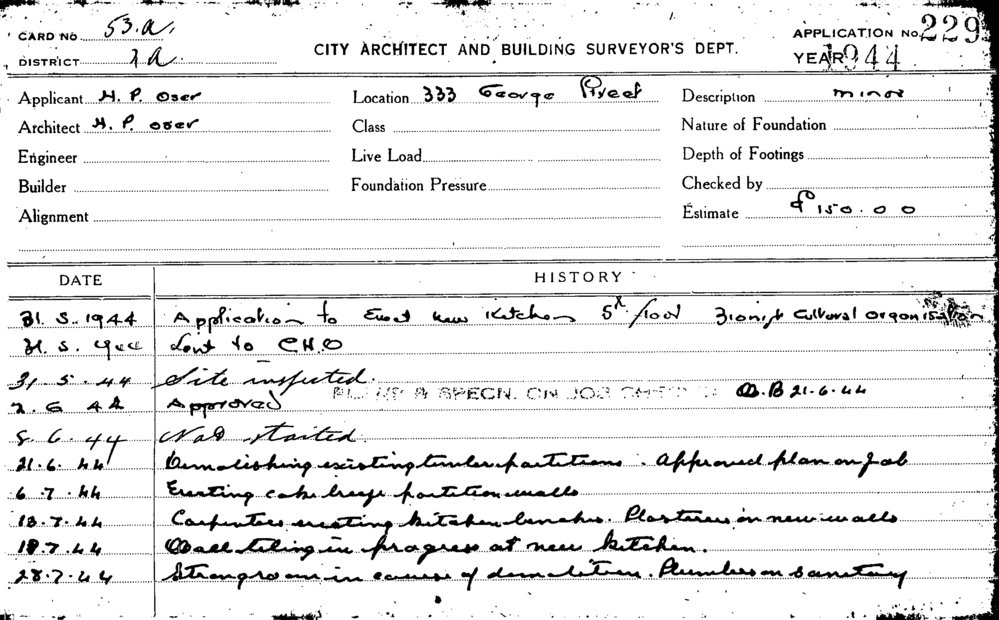 CARD No 53.a. APPLICATION No. 229
CITY ARCHITECT AND BUILDING SURVEYOR'S DEPT.
DISTRICT YEAR 1944
Applicant H. P. Oser Location 333 George Street Description minor
Architect H. P. oser Class Nature of Foundation
Engineer Live Load Depth of Footings
Builder Foundation Pressure Checked by
Alignment Estimate £150.00
DATE HISTORY
31. 5. 1944 Application to Erect new Kitchen 5th floor Zionist Cultural organisation
31. 5. Sent to C.H.O
31. 5. 44 Site inspected.
2. 6 44 Approved
PLANS & SPECN. ON JOB 21.6.44
8. 6. 44 Not started.
21.6. 44 Demolishing existing timber partitions. Approved plan on job
6. 7. 44 Erecting coke breeze partition walls
13.7.44 Carpenters erecting kitchen benches. Plasterers on new walls
18.7.44 Wall tiling in progress at new kitchen.
28.7.44 Strongroom in course of demolition. Plumbers on sanitary